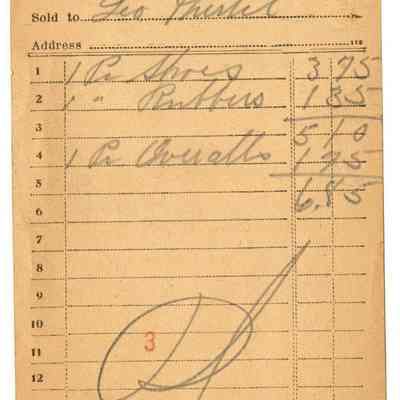 Sold to Geo
Address
1 1 Pr Shoes 3 75
2 1 " Rubbers 1 35
3 5 10
4 1 Pr Overalls 1 75
5 6.85
6
7
8
9
10
3
11
12